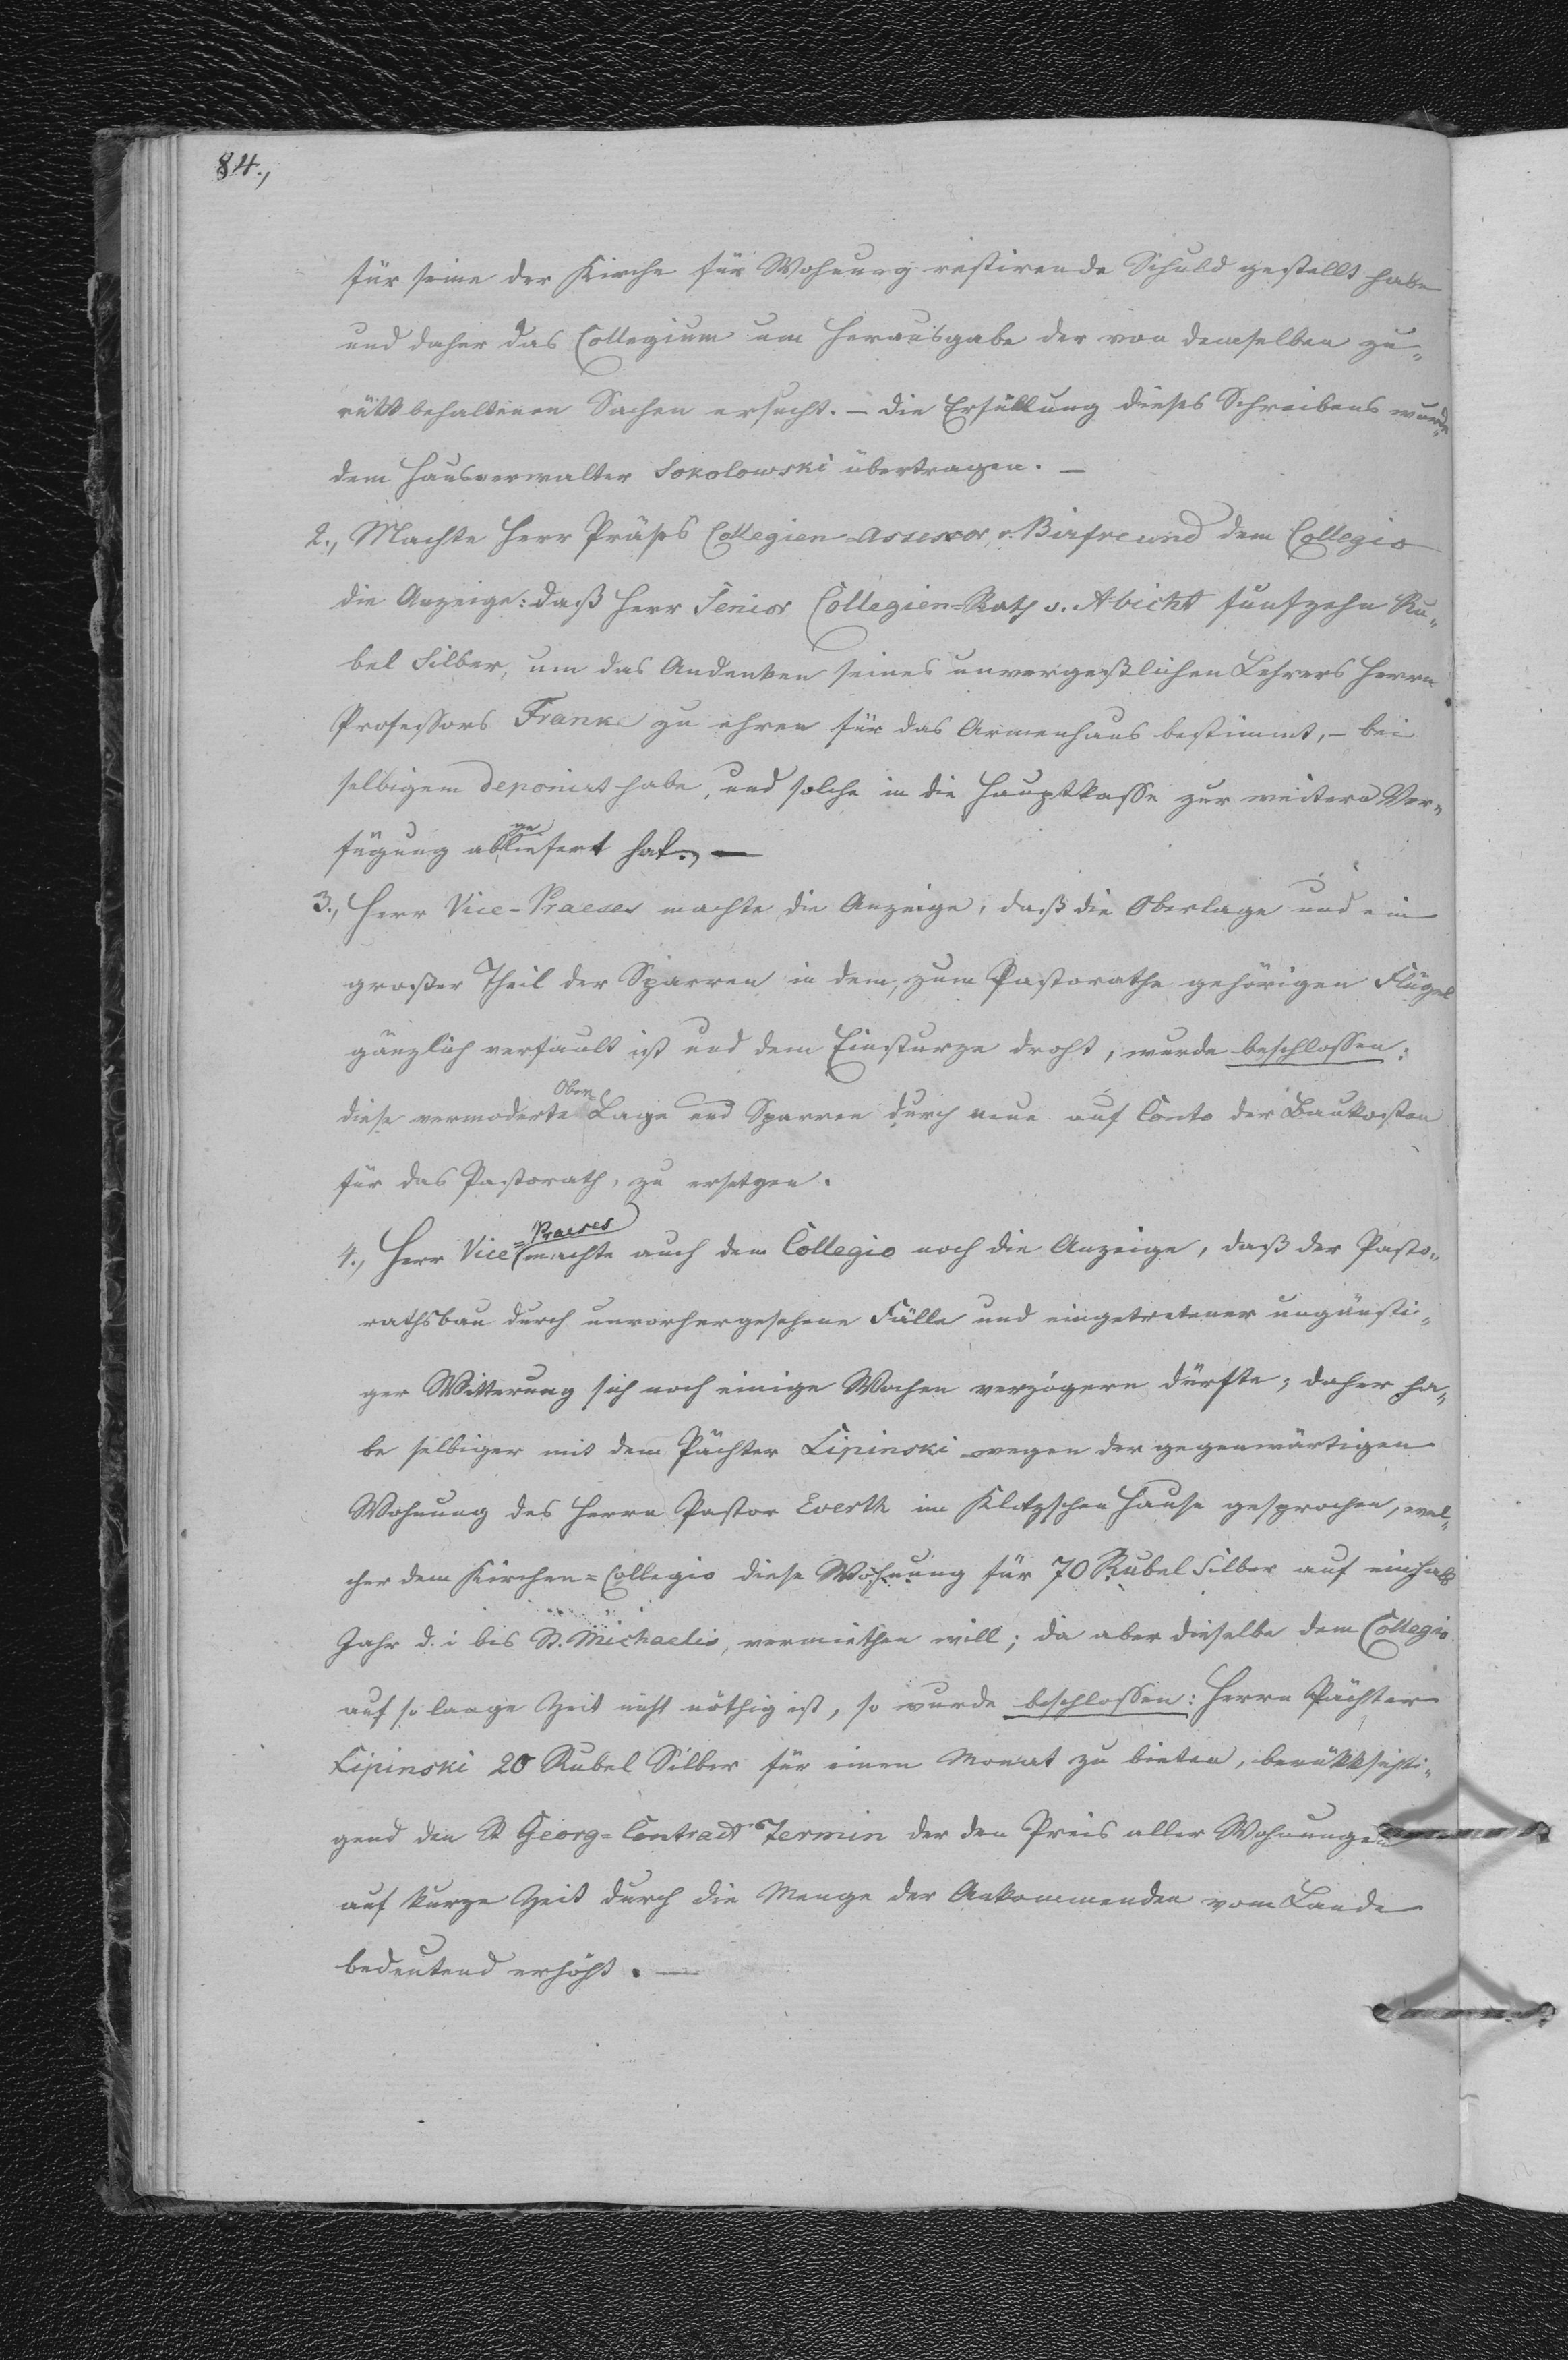 84.,
für seine der Kirche für Wohnung restirende Schuld gestellt habe
und daher das Collegium um Herausgabe der von demselben zu-
rükkbehaltenen Sachen ersucht. – die Erfüllung dieses Schreibens wurde
dem Hausverwalter Sokolowski übertragen. –
2., Machte Herr Präses Collegien-Assessor v. Birfreund dem Collegio
die Anzeige: daß Herr Senior Collegien-Rath v. Abicht funfzehn Ru-
bel Silber, um das Andenken seines unvergeßlichen Lehrers Herrn
Professors Frank zu ehren für das Armenhaus bestimmt, – bei
selbigem deponirt habe, und solche in die Hauptkasse zur weitern Ver-
fügung abgeliefert hat. –
3., Herr Vice-Praeses machte die Anzeige, daß die Oberlage und ein
großer Theil der Sparren in dem, zum Pastorathe gehörigen Flügel
gänzlich verfault ist und dem Einsturze droht, wurde beschlossen:
diese vermoderte Ober-Lage und Sparren durch neue auf Conto der Baukosten
für das Pastorath, zu ersetzen.
4., Herr Vice=Praeses machte auch dem Collegio noch die Anzeige, daß der Pasto-
rathsbau durch unvorhergesehene Fälle und eingetretener ungünsti-
ger Witterung sich noch einige Wochen verzögern dürfte; daher ha-
be selbiger mit dem Pächter Lipinski wegen der gegenwärtigen
Wohnung des Herrn Pastor Everth im Klotzschen Hause gesprochen, wel-
cher dem Kirchen=Collegio diese Wohnung für 70 Rubel Silber auf ein halb
Jahr d. i bis St. Michaelis, vermiethen will; da aber dieselbe dem Collegio
auf so lange Zeit nicht nöthig ist, so wurde beschlossen: Herrn Pächter
Lipinski 20 Rubel Silber für einen Monat zu bieten, berükksichti-
gend den St Georg=Contract Termin der den Preis aller Wohnungen
auf kurze Zeit durch die Menge der Ankommenden vom Lande
bedeutend erhöht. –